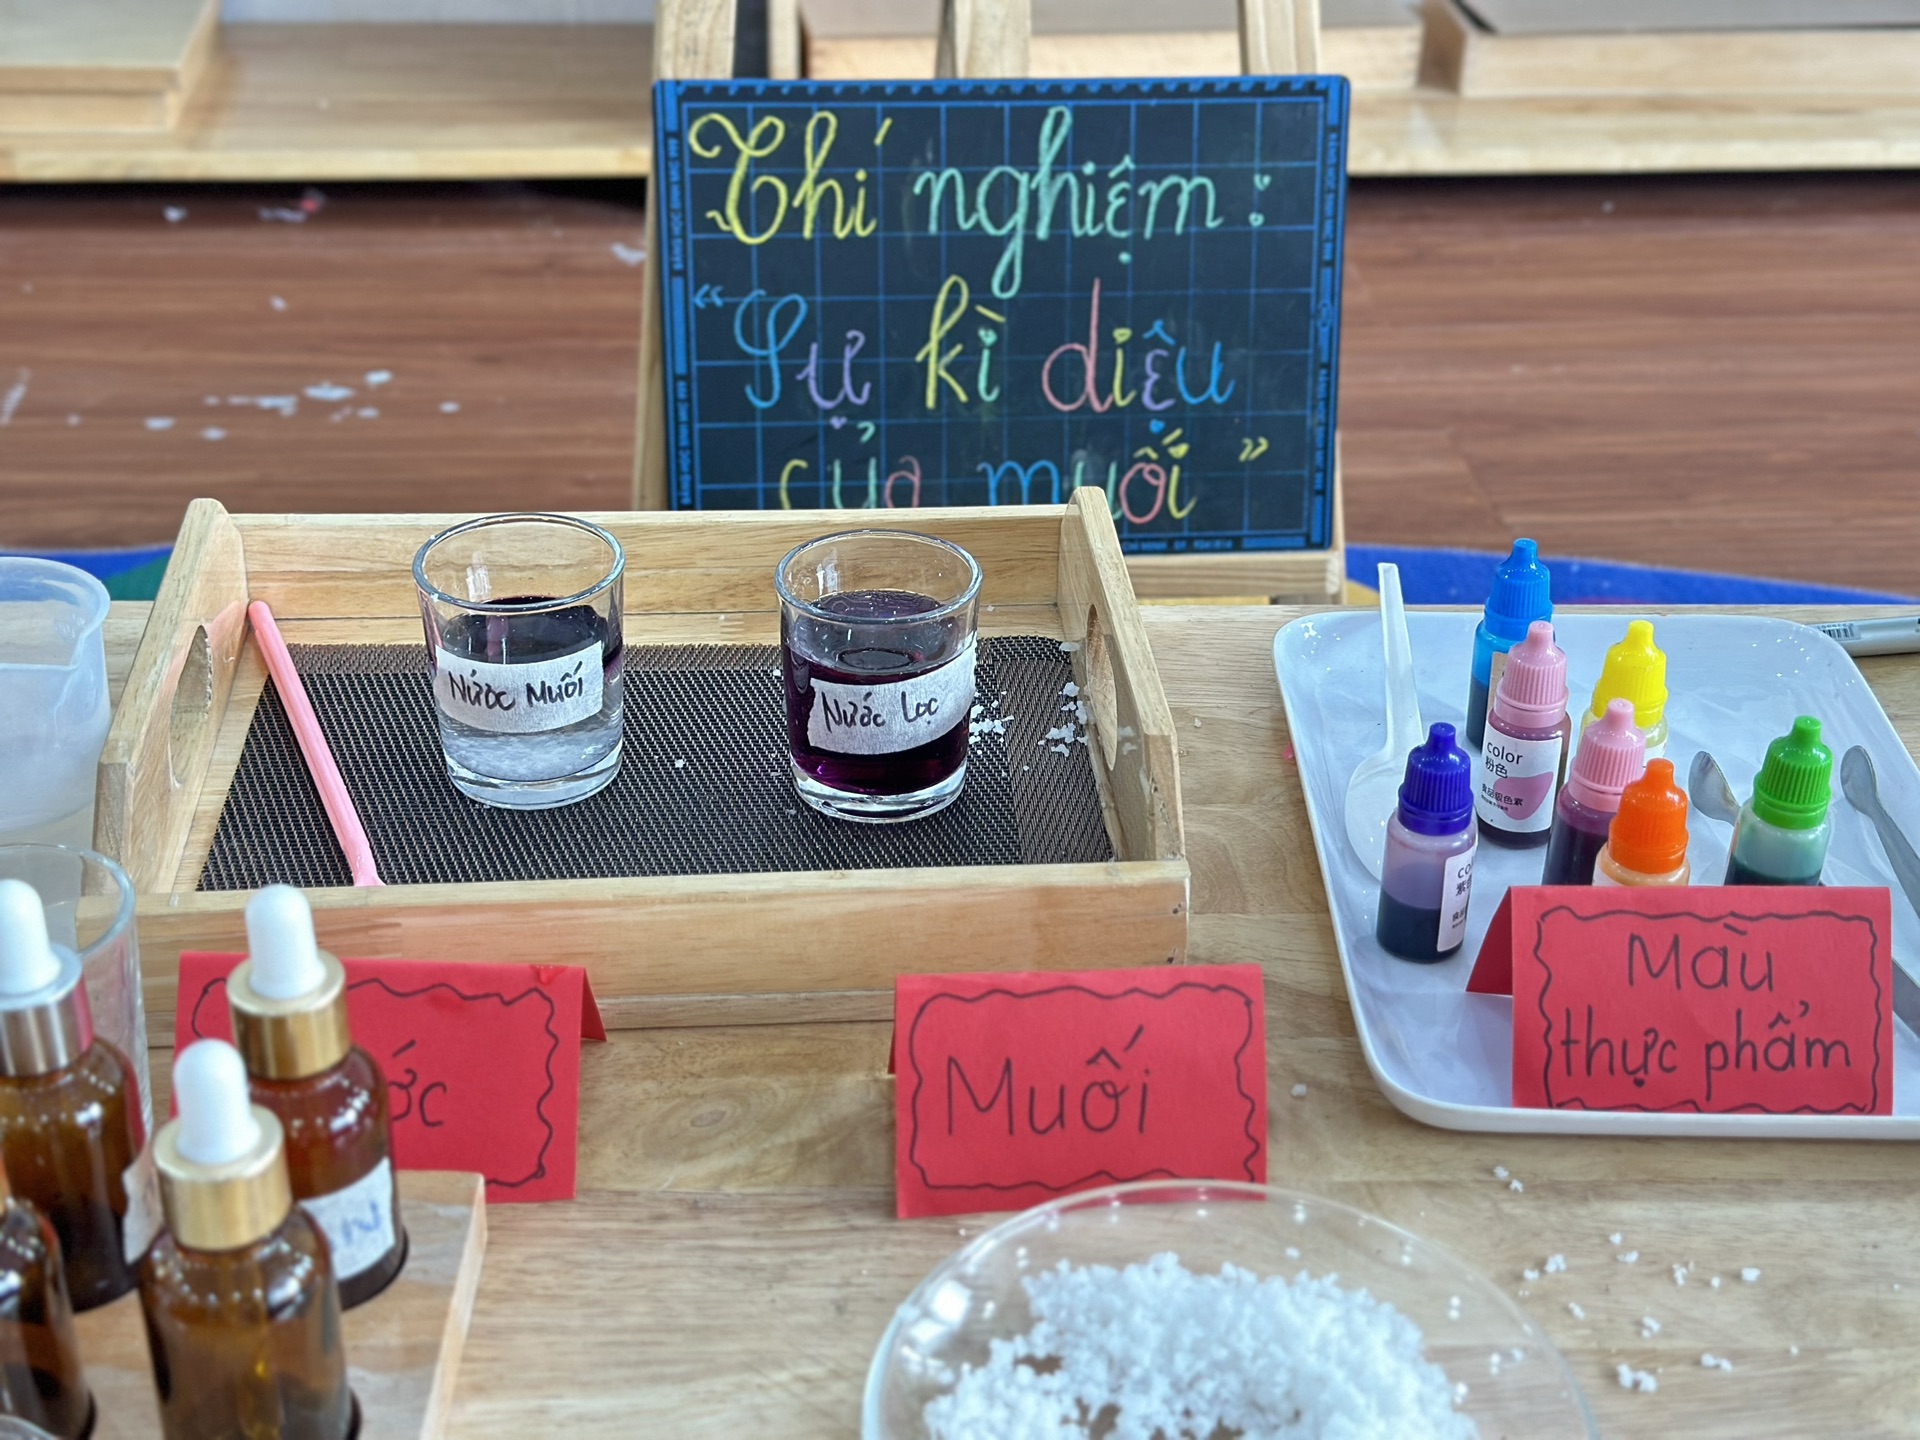 Thí nghiệm:
"Sự kì diệu
của muối"
Nước Muối
Nước Lọc
color
粉色
食品级色素
Muối
Màu
thực phẩm